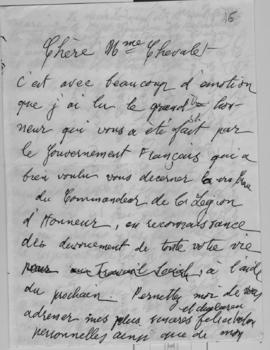 15
Chère Mme Chevalet
c'est avec beaucoup d'émotion
que j'ai lu le grand hon-
neur qui vous a été fait par
le Gouvernement Français qui a
bien voulu vous decerner la
du Commandeur de la Légion
d'Honneur, en reconnaissance
des devouement de toute votre vie
à l'aide
du prochain. Permettez moi de vous
adresser mes plus sincères félicitations
personnelles ainsi que de mon